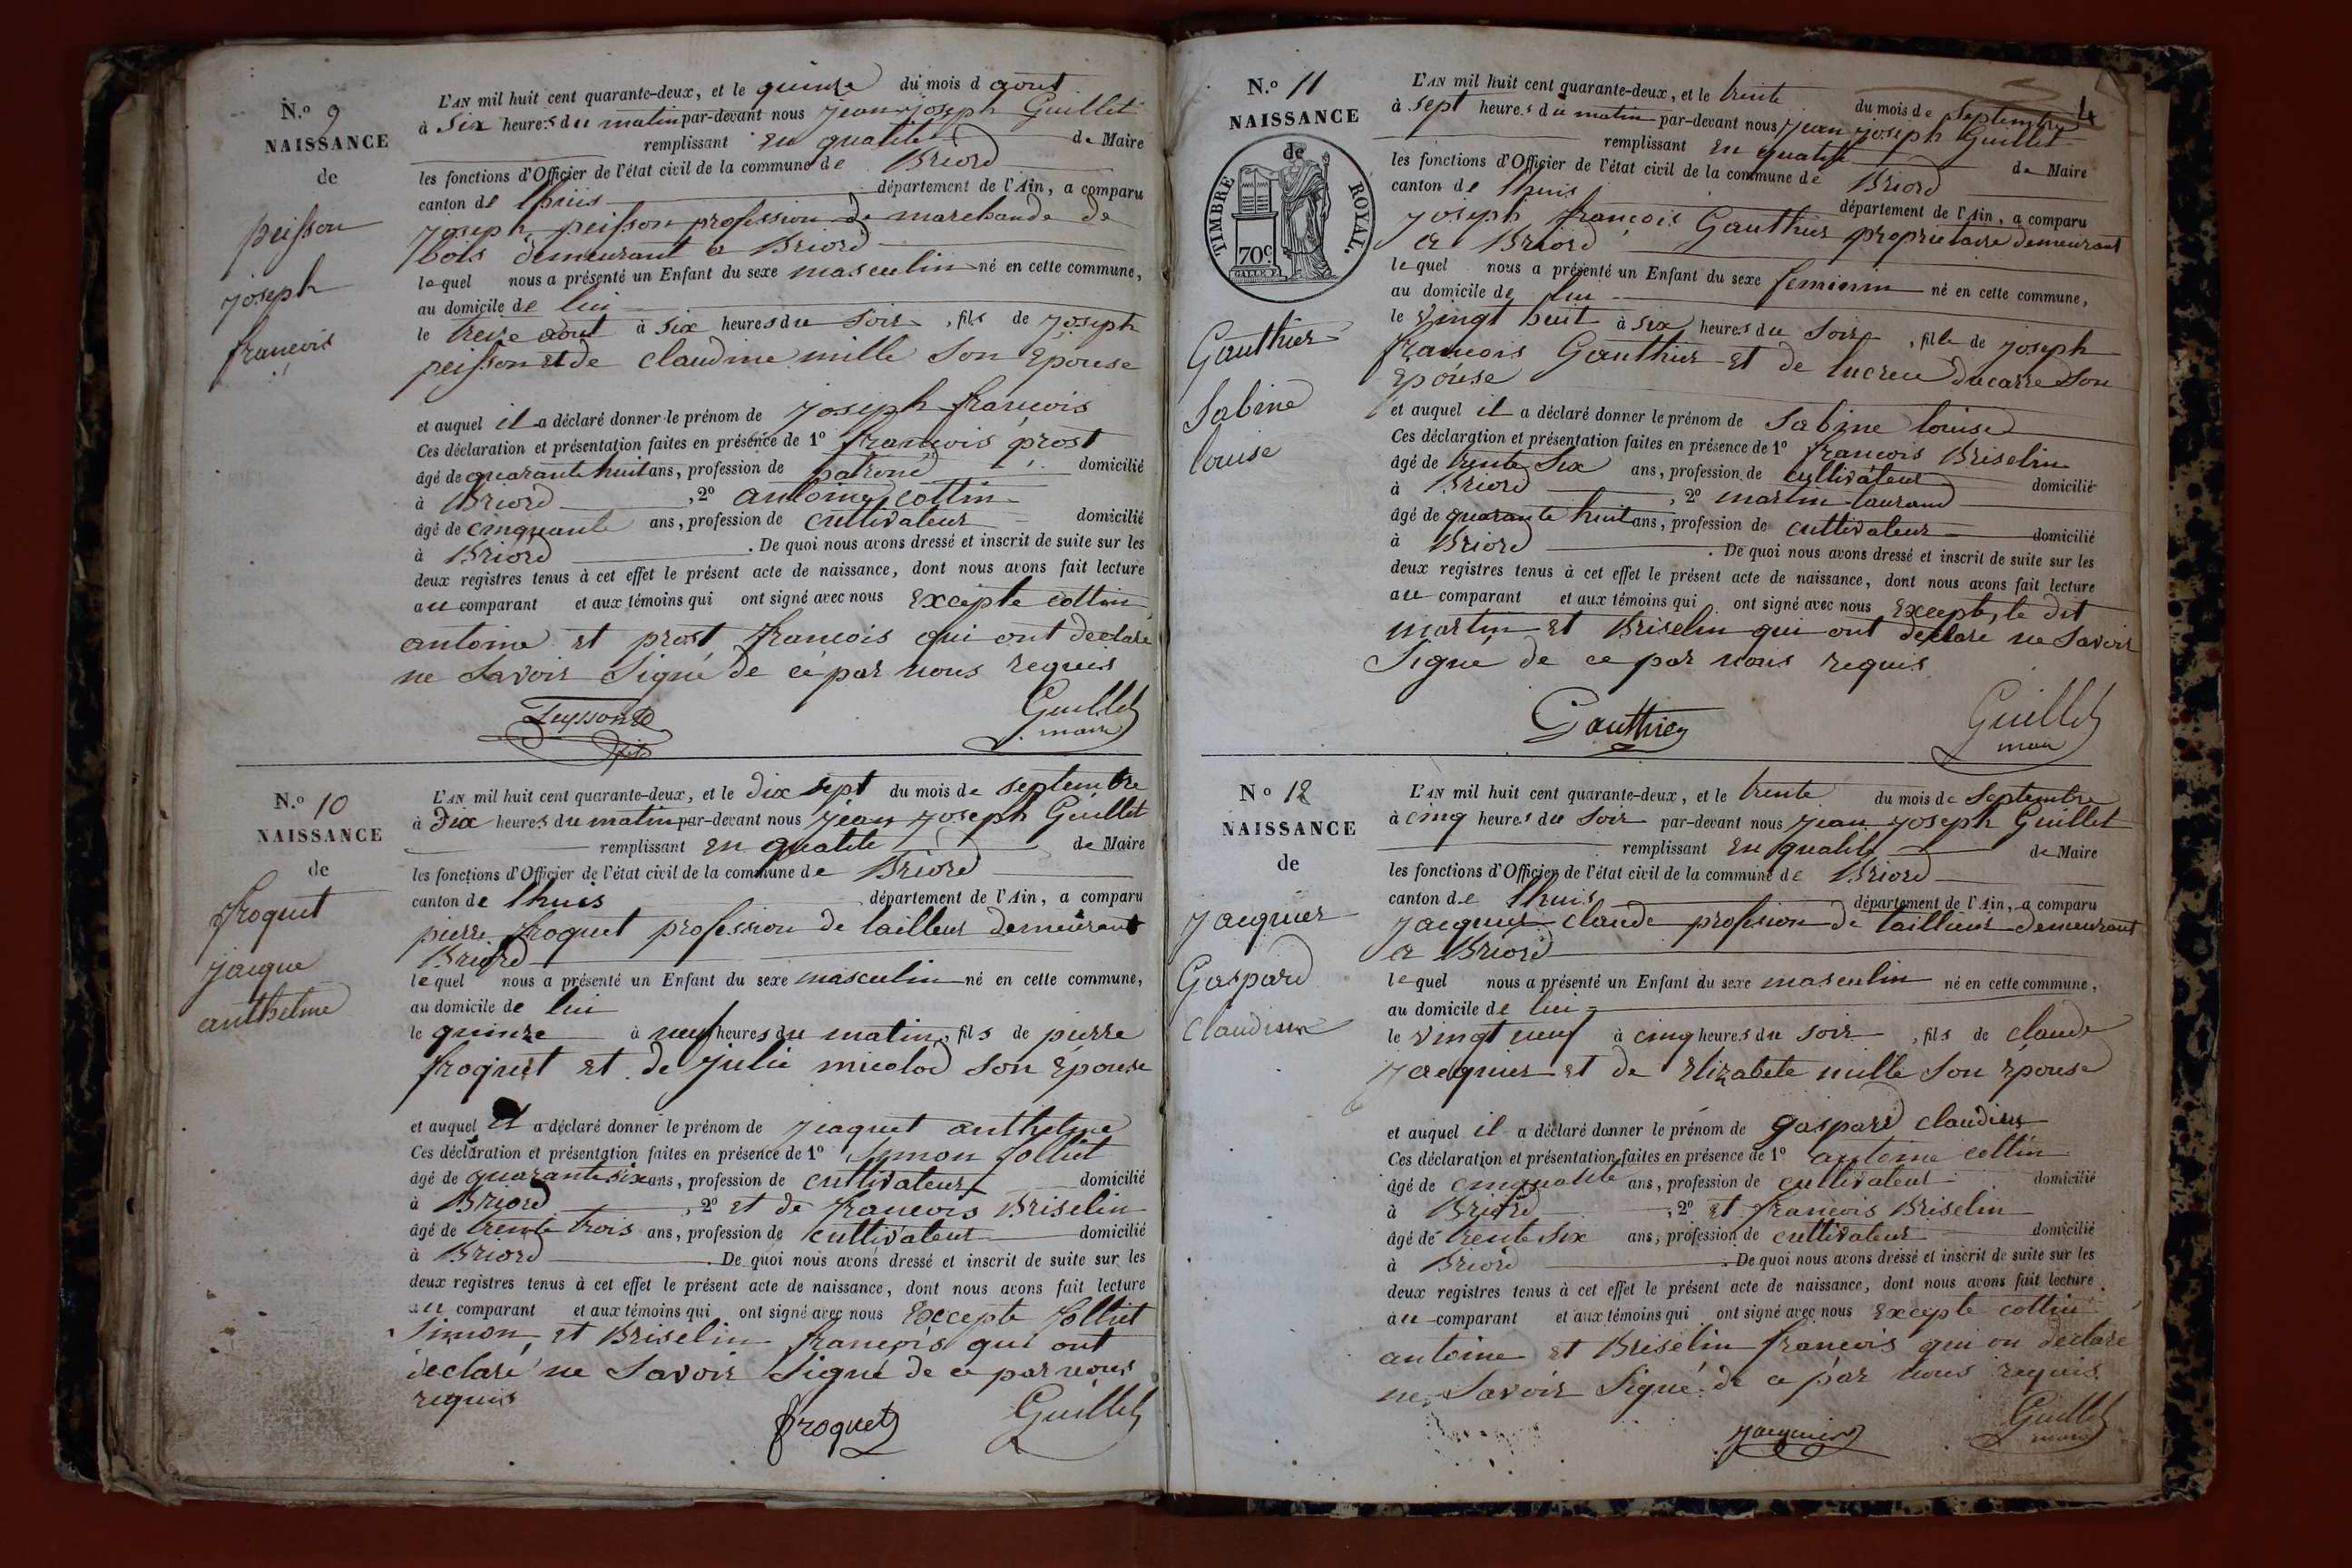 N.o 9
NAISSANCE
de
peisson
joseph
francois
L'AN mil huit cent quarante-deux, et le quinze du mois d aout
à six heures du matin par-devant nous jean joseph Guillet
remplissant en qualité de Maire
les fonctions d'Officier de l'état civil de la commune de Briord
canton de lhuis département de l'Ain, a comparu
joseph peisson profession de marchande de
bois demeurant a Briord
lequel nous a présenté un Enfant du sexe masculin né en cette commune,
au domicile de lui
le treize aout à six heures du soir, fils de joseph
peisson et de claudine mille son Epouse
et auquel il a déclaré donner le prénom de joseph francois
Ces déclaration et présentation faites en présence de 1o francois prost
âgé de quarante huit ans, profession de patron domicilié
à Briord, 2o antoine cottin
âgé de cinquante ans, profession de cultivateur domicilié
à Briord. De quoi nous avons dressé et inscrit de suite sur les
deux registres tenus à cet effet le présent acte de naissance, dont nous avons fait lecture
au comparant et aux témoins qui ont signé avec nous Excepte cottin
antoine et prost francois qui ont declare
ne savoir signé de ce par nous requis
Peysson
fils
Guillet
maire
N.o 10
NAISSANCE
de
froquet
jacque
anthelme
L'AN mil huit cent quarante-deux, et le dix sept du mois de septembre
à dix heures du matin par-devant nous jean joseph Guillet
remplissant en qualité de Maire
les fonctions d'Officier de l'état civil de la commune de Briord
canton de lhuis département de l'Ain, a comparu
pierre froquet profession de tailleur demeurant
Briord
lequel nous a présenté un Enfant du sexe masculin né en cette commune,
au domicile de lui
le quinze à neuf heures du matin, fils de pierre
froquet et de julie micolod son Epouse
et auquel il a déclaré donner le prénom de jacquet anthelme
Ces déclaration et présentation faites en présence de 1o simon folliet
âgé de quarante six ans, profession de cultivateur domicilié
à Briord, 2o et de francois Briselin
âgé de trente trois ans, profession de cultivateur domicilié
à Briord. De quoi nous avons dressé et inscrit de suite sur les
deux registres tenus à cet effet le présent acte de naissance, dont nous avons fait lecture
au comparant et aux témoins qui ont signé avec nous Excepte folliet
simon, et Briselin francois qui ont
declaré ne savoir signé de ce par nous
requis
froquet
Guillet
4
N.o 11
NAISSANCE
de
TIMBRE ROYAL.
70c
Gauthier
Sabine
louise
L'AN mil huit cent quarante-deux, et le trente du mois de septembre
à sept heures du matin par-devant nous jean joseph Guillet
remplissant en qualité de Maire
les fonctions d'Officier de l'état civil de la commune de Briord
canton de lhuis département de l'Ain, a comparu
joseph francois Gauthier propriétaire demeurant
a Briord
lequel nous a présenté un Enfant du sexe feminin né en cette commune,
au domicile de lui
le vingt huit à six heures du soir, fille de joseph
francois Gauthier et de lucrece Ducarre son
Epouse
et auquel il a déclaré donner le prénom de sabine louise
Ces déclaration et présentation faites en présence de 1o francois Briselin
âgé de trente six ans, profession de cultivateur domicilié
à Briord, 2o martin laurand
âgé de quarante huit ans, profession de cultivateur domicilié
à Briord. De quoi nous avons dressé et inscrit de suite sur les
deux registres tenus à cet effet le présent acte de naissance, dont nous avons fait lecture
au comparant et aux témoins qui ont signé avec nous Excepte, le dit
martin et Briselin qui ont declare ne savoir
signé de ce par nous requis
Gauthier
Guillet
maire
No 12
NAISSANCE
de
jacquier
Gaspard
claudius
L'AN mil huit cent quarante-deux, et le trente du mois de septembre
à cinq heures du soir par-devant nous jean joseph Guillet
remplissant en qualité de Maire
les fonctions d'Officier de l'état civil de la commune de Briord
canton de lhuis département de l'Ain, a comparu
jacquier claude profession de tailleur demeurant
a Briord
lequel nous a présenté un Enfant du sexe masculin né en cette commune,
au domicile de lui
le vingt neuf à cinq heures du soir, fils de claude
jacquier et de Elizabete mille son épouse
et auquel il a déclaré donner le prénom de gaspard claudius
Ces déclaration et présentation faites en présence de 1o antoine cottin
âgé de cinquante ans, profession de cultivateur domicilié
à Briord, 2o et francois Briselin
âgé de trente six ans, profession de cultivateur domicilié
à Briord. De quoi nous avons dressé et inscrit de suite sur les
deux registres tenus à cet effet le présent acte de naissance, dont nous avons fait lecture
au comparant et aux témoins qui ont signé avec nous excepte cottin
antoine et Briselin francois qui on declare
ne savoir signé de ce par nous requis
jacquier
Guillet
maire